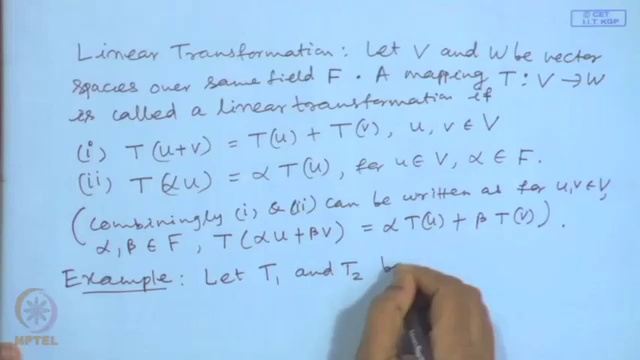 © CET
I.I.T. KGP
Linear Transformation: Let V and W be vector
spaces over same field F. A mapping T: V → W
is called a linear transformation if
(i) T(u+v) = T(u) + T(v), u, v ∈ V
(ii) T(αu) = α T(u), for u ∈ V, α ∈ F.
(combiningly (i) & (ii) can be written as for u,v ∈ V,
α, β ∈ F, T(αu + βv) = α T(u) + β T(v)).
Example: Let T₁ and T₂ b
NPTEL